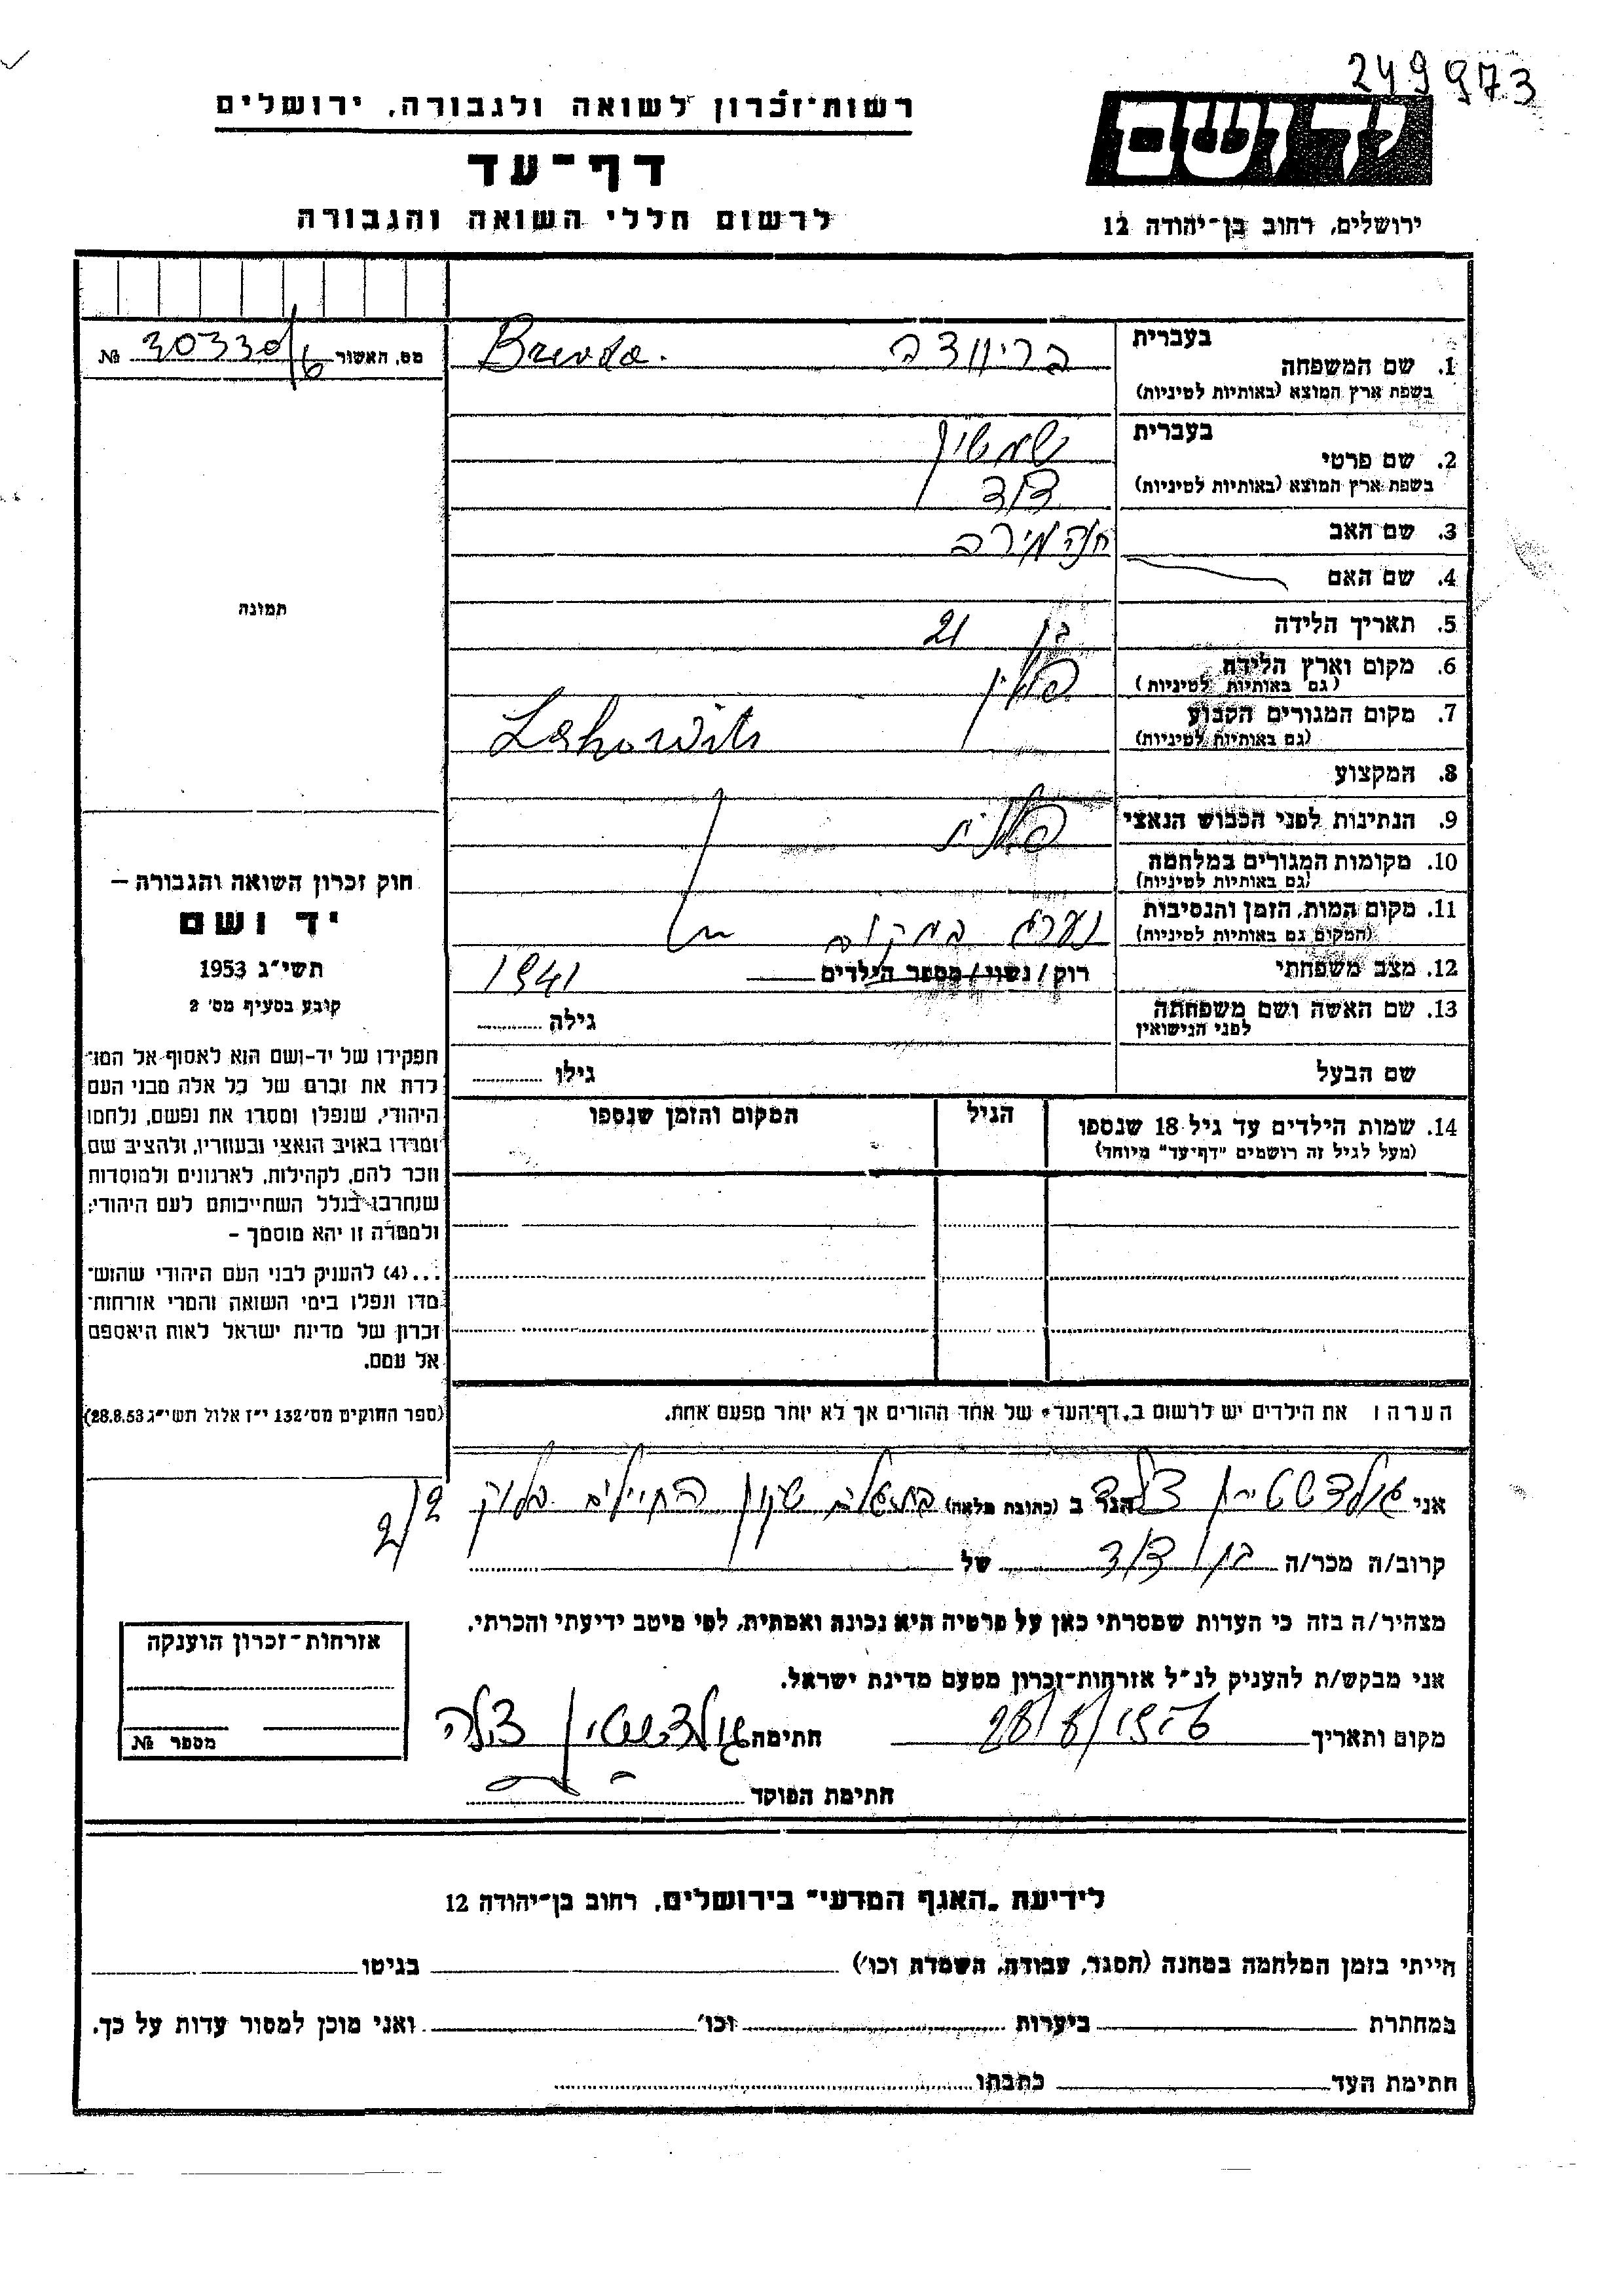 249973
רשות־זכרון לשואה ולגבורה, ירושלים
יד ושם
דף־עד
לרשום חללי השואה והגבורה
ירושלים, רחוב בן־יהודה 12
מס. האשור 30330/6 №
בעברית
1. שם המשפחה
Brenda.
בשפת ארץ המוצא (באותיות לטיניות)
בעברית
2. שם פרטי
בשפת ארץ המוצא (באותיות לטיניות)
דוד
3. שם האב
4. שם האם
תמונה
5. תאריך הלידה בן 21
6. מקום וארץ הלידה פולין
(גם באותיות לטיניות)
7. מקום המגורים הקבוע Lahowits
(גם באותיות לטיניות)
8. המקצוע
9. הנתינות לפני הכבוש הנאצי פולנית
10. מקומות המגורים במלחמה
(גם באותיות לטיניות)
11. מקום המות, הזמן והנסיבות
(המקום גם באותיות לטיניות)
במקום
12. מצב משפחתי רוק / נשוי / מספר הילדים 1941
13. שם האשה ושם משפחתה גילה
לפני הנישואין
שם הבעל גילו
14. שמות הילדים עד גיל 18 שנספו הגיל המקום והזמן שנספו
(מעל לגיל זה רושמים "דף־עד" מיוחד)
חוק זכרון השואה והגבורה —
יד ושם
תשי"ג 1953
קובע בסעיף מס' 2
תפקידו של יד-ושם הוא לאסוף אל המו־
לדת את זכרם של כל אלה מבני העם
היהודי, שנפלו ומסרו את נפשם, נלחמו
ומרדו באויב הנאצי ובעוזריו, ולהציב שם
וזכר להם, לקהילות, לארגונים ולמוסדות
שנחרבו בגלל השתייכותם לעם היהודי;
ולמטרה זו יהא מוסמך –
...(4) להעניק לבני העם היהודי שהוש־
מדו ונפלו בימי השואה והמרי אזרחות־
זכרון של מדינת ישראל לאות היאספם
אל עמם.
(ספר החוקים מס' 132 י"ז אלול תשי"ג 28.8.53)
הערה: את הילדים יש לרשום ב"דף־העד" של אחד ההורים אך לא יותר מפעם אחת.
אני גולדשטיין הגר ב (כתובת מלאה) שכון החיילים בלוק 2/2
קרוב/ה מכר/ה בן דוד של
מצהיר/ה בזה כי העדות שמסרתי כאן על פרטיה היא נכונה ואמתית, לפי מיטב ידיעתי והכרתי.
אני מבקש/ת להעניק לנ"ל אזרחות־זכרון מטעם מדינת ישראל.
מקום ותאריך חתימה גולדשטיין
חתימת הפוקד
אזרחות־זכרון הוענקה
מספר №
לידיעת "האגף המדעי" בירושלים, רחוב בן־יהודה 12
הייתי בזמן המלחמה במחנה (הסגר, עבודה, השמדה וכו') בגיטו
במחתרת ביערות וכו' ואני מוכן למסור עדות על כך.
חתימת העד כתבתו